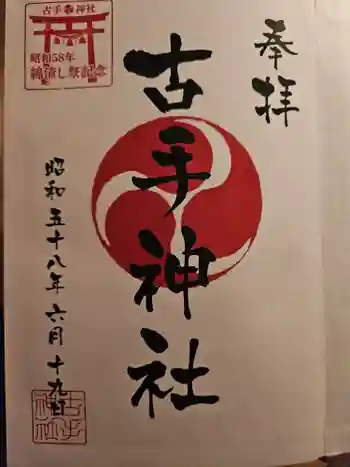 奉拝
古手神社
昭和五十八年六月十九日
古手神社
昭和58年
綿流し祭記念
古手神社